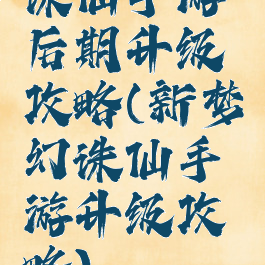 诛仙手游
后期升级
攻略(新梦
幻诛仙手
游升级攻
略)